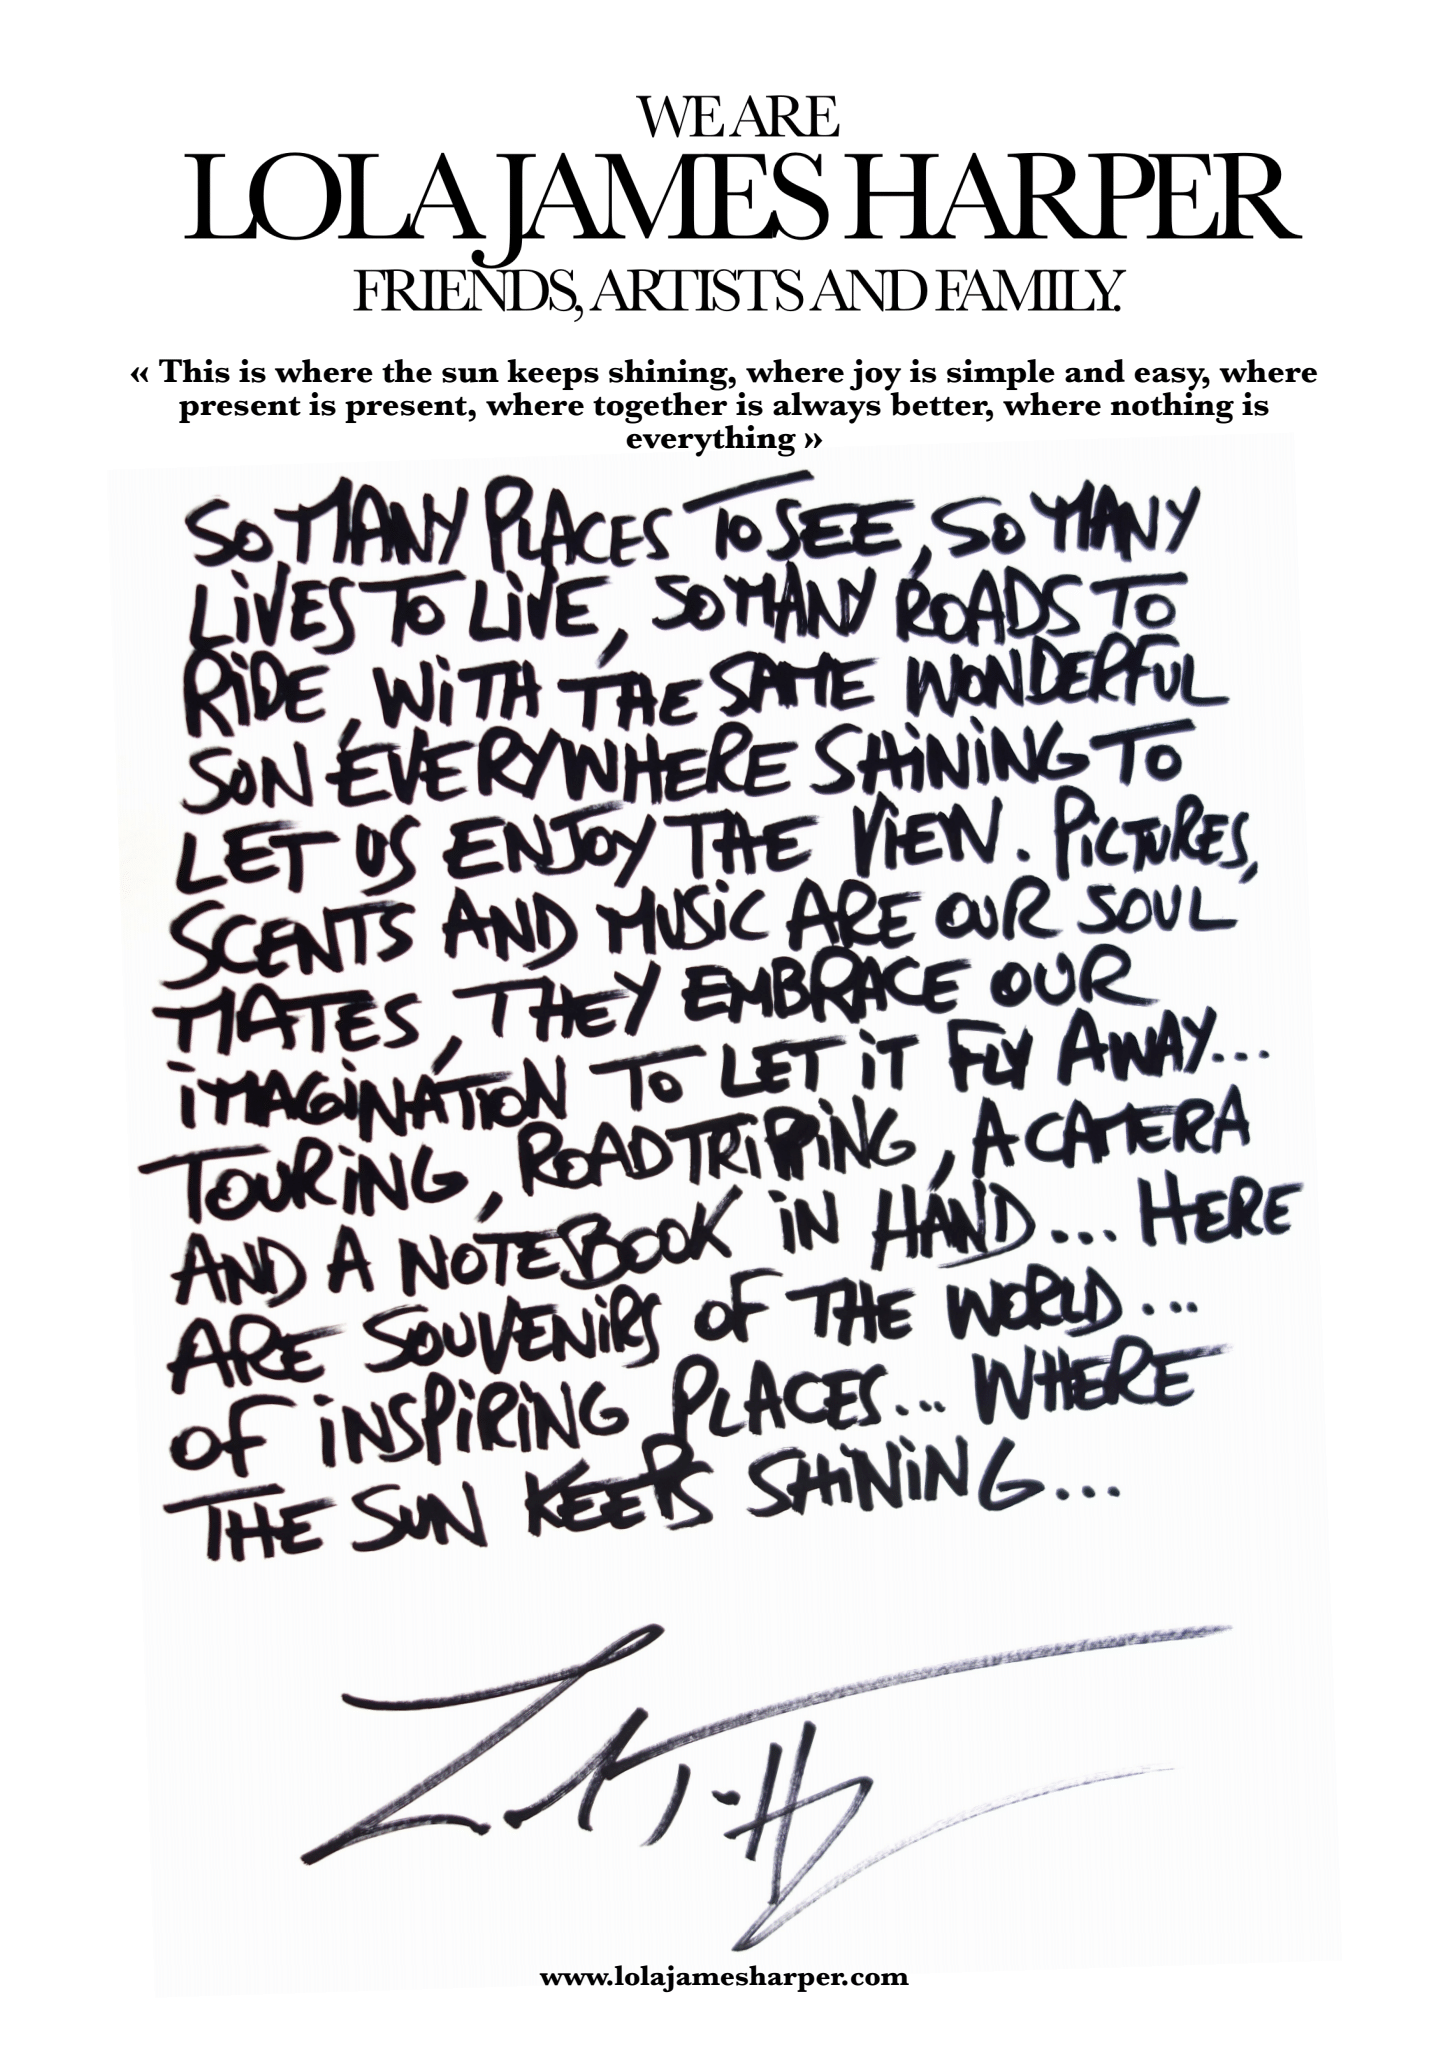 WE ARE
LOLA JAMES HARPER
FRIENDS, ARTISTS AND FAMILY.
« This is where the sun keeps shining, where joy is simple and easy, where
present is present, where together is always better, where nothing is
everything »
SO MANY PLACES TO SEE, SO MANY
LiVES TO LiVE, SO MANY ROADS TO
RiDE, WiTH THE SAME WONDERFUL
SON EVERYWHERE SHiNiNG TO
LET US ENJOY THE ViEW. PiCTURES,
SCENTS AND MUSiC ARE OUR SOUL
MATES, THEY EMBRACE OUR
iMAGiNATiON TO LET iT FLY AWAY...
TOURiNG, ROADTRiPPiNG, A CAMERA
AND A NOTEBOOK iN HAND... HERE
ARE SOUVENiRS OF THE WORLD...
OF iNSPiRiNG PLACES... WHERE
THE SUN KEEPS SHiNiNG...
www.lolajamesharper.com